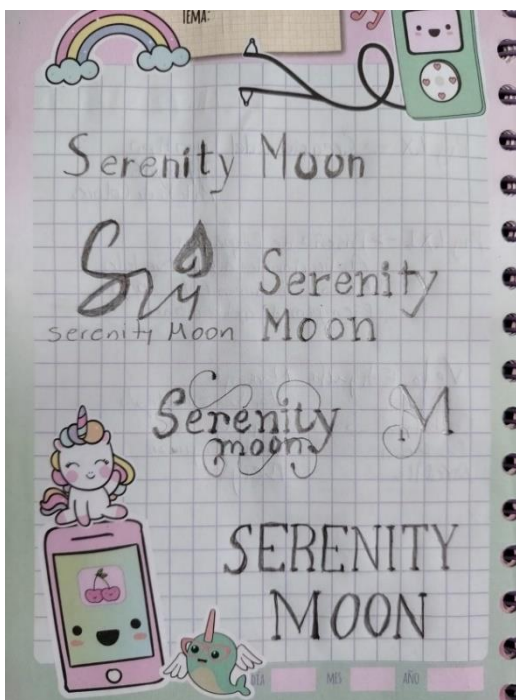 TEMA:
Serenity Moon
Serenity
Moon
Serenity Moon
Serenity
moon
M
SERENITY
MOON
DÍA MES AÑO